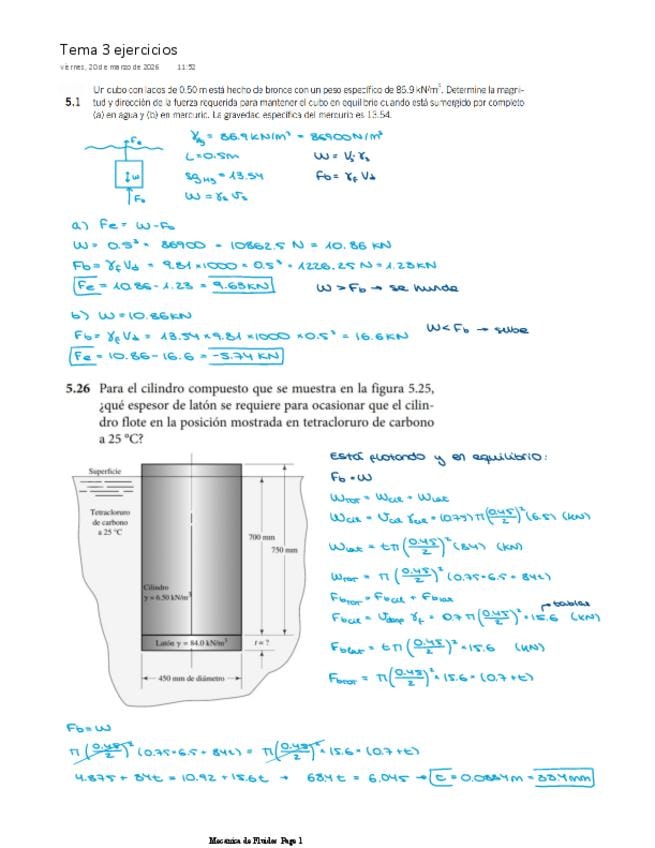 Tema 3 ejercicios
viernes, 20 de marzo de 2026 11:52
Un cubo con lados de 0.50 m está hecho de bronce con un peso específico de 86.9 kN/m³. Determine la magni-
5.1 tud y dirección de la fuerza requerida para mantener el cubo en equilibrio cuando está sumergido por completo
(a) en agua y (b) en mercurio. La gravedad específica del mercurio es 13.54.
Fe
γs = 86.9 KN/m³ = 86900 N/m³
L = 0.5m
W = Vs·γs
W
sg Hg = 13.54
Fb = γf Vd
Fb
W = γs Vs
a) Fe = W - Fb
W = 0.5³ · 86900 = 10862.5 N = 10.86 KN
Fb = γf Vd = 9.81 × 1000 × 0.5³ = 1226.25 N = 1.23 KN
Fe = 10.86 - 1.23 = 9.63 KN W > Fb → se hunde
b) W = 10.86 KN
Fb = γf Vd = 13.54 × 9.81 × 1000 × 0.5³ = 16.6 KN W < Fb → sube
Fe = 10.86 - 16.6 = -5.74 KN
5.26 Para el cilindro compuesto que se muestra en la figura 5.25,
¿qué espesor de latón se requiere para ocasionar que el cilin-
dro flote en la posición mostrada en tetracloruro de carbono
a 25 °C?
Superficie
Tetracloruro
de carbono
a 25 °C
700 mm
750 mm
Cilindro
γ = 6.50 kN/m³
Latón γ = 84.0 kN/m³
t = ?
450 mm de diámetro
Está flotando y en equilibrio:
Fb = W
Wtot = Wcil + Wlat
Wcil = Vcil γcil = (0.75) π (0.45/2)² (6.5) (KN)
Wlat = t π (0.45/2)² (84) (KN)
Wtot = π (0.45/2)² (0.75·6.5 + 84t)
Fbtot = Fbcil + Fblat
tablas
Fbcil = Vdesp γf = 0.7 π (0.45/2)² · 15.6 (KN)
Fblat = t π (0.45/2)² · 15.6 (KN)
Fbtot = π (0.45/2)² · 15.6 · (0.7 + t)
Fb = W
π (0.45/2)² (0.75·6.5 + 84t) = π (0.45/2)² · 15.6 · (0.7 + t)
4.875 + 84t = 10.92 + 15.6t → 68.4t = 6.045 → t = 0.0884m = 88.4mm
Mecanica de Fluidos Page 1